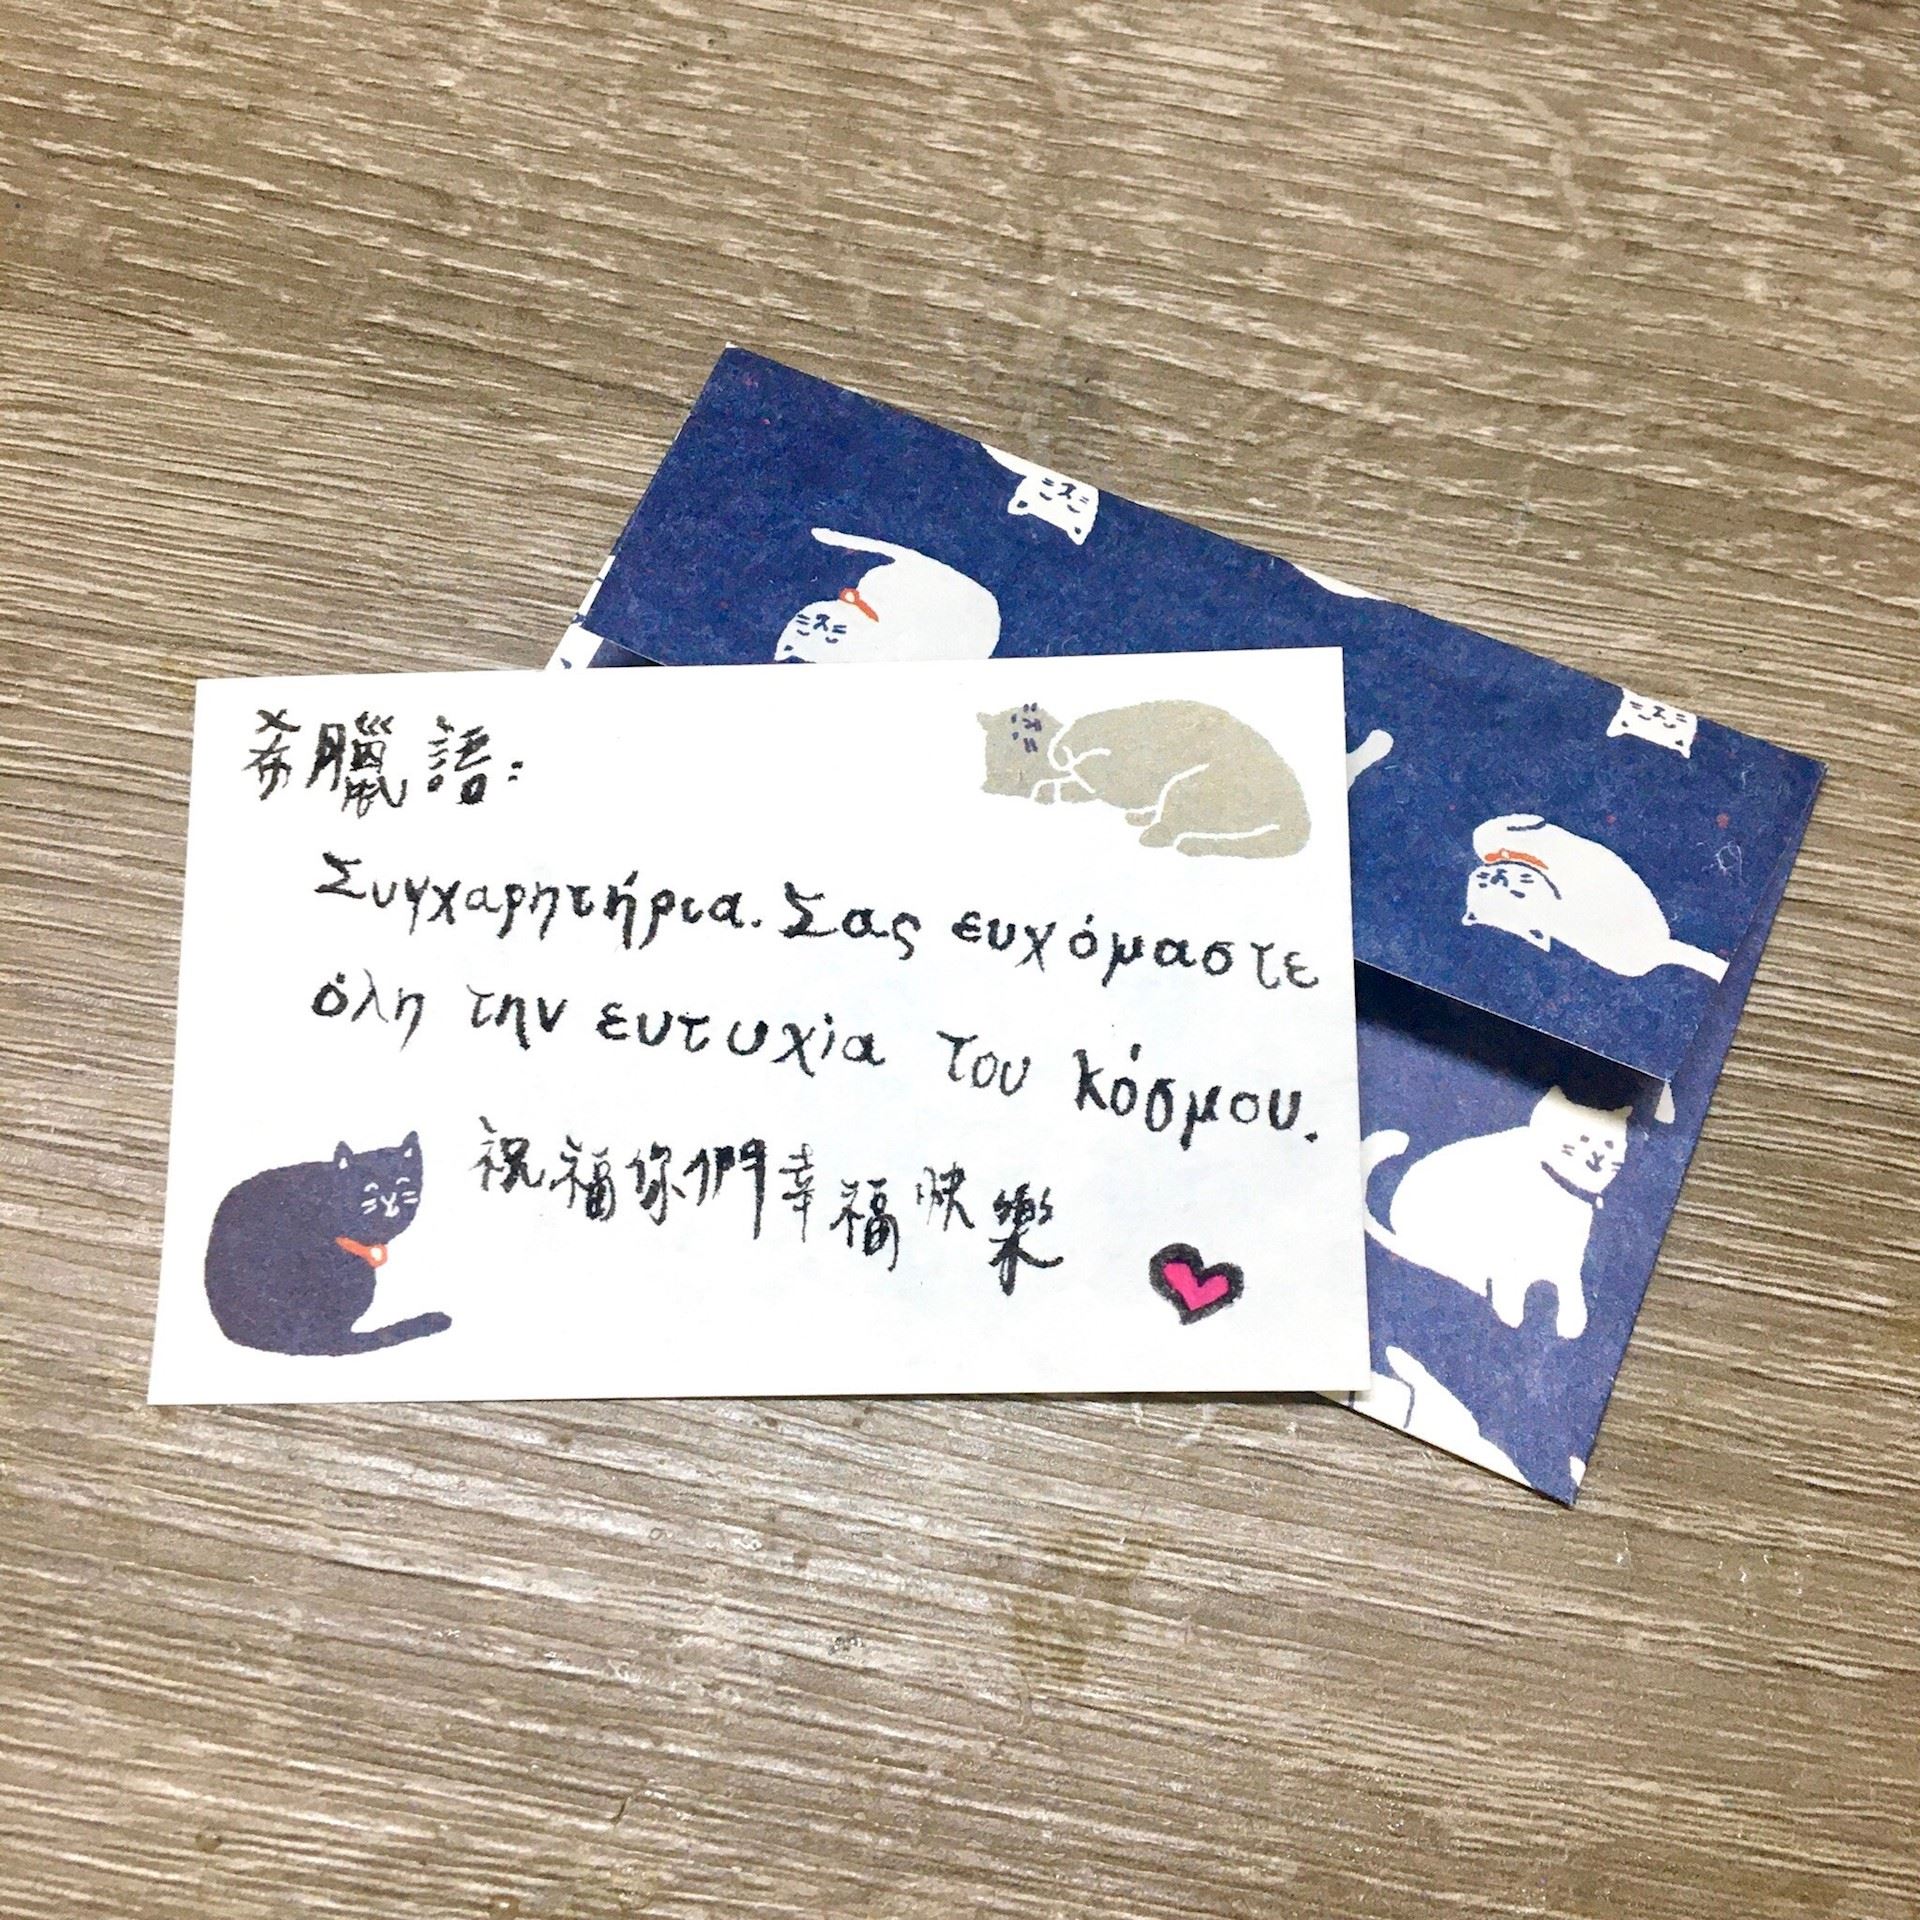 希臘語:
Συγχαρητήρια. Σας ευχόμαστε
όλη την ευτυχία του κόσμου.
祝福你們幸福快樂